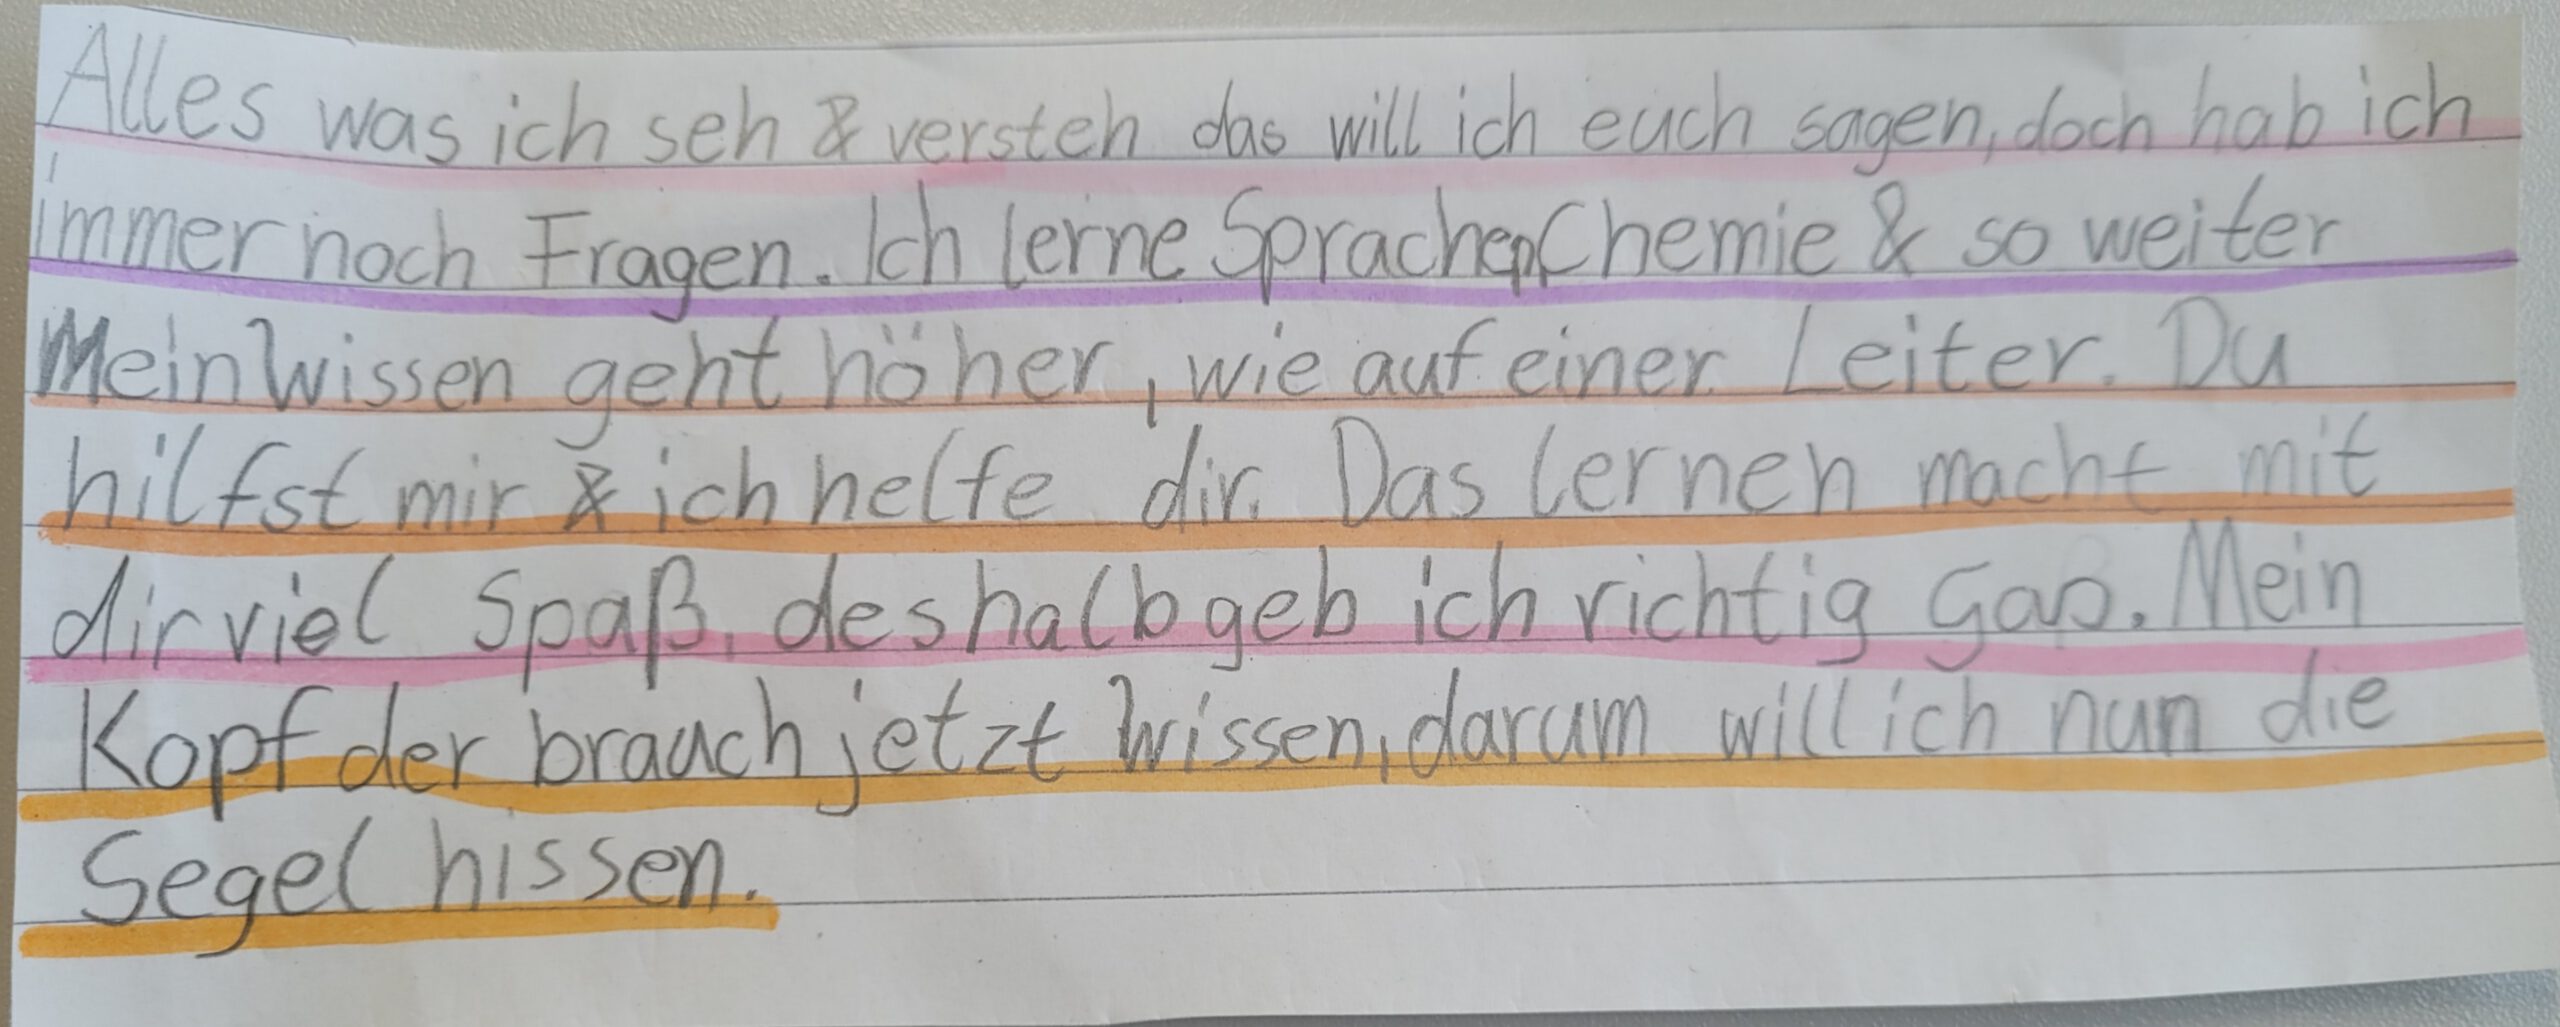 Alles was ich seh & versteh das will ich euch sagen, doch hab ich
immer noch Fragen. Ich lerne Sprachen, Chemie & so weiter
Mein Wissen geht höher, wie auf einer Leiter. Du
hilfst mir & ich helfe dir. Das lernen macht mit
dir viel Spaß, deshalb geb ich richtig Gas. Mein
Kopf der brauch jetzt Wissen, darum will ich nun die
Segel hissen.